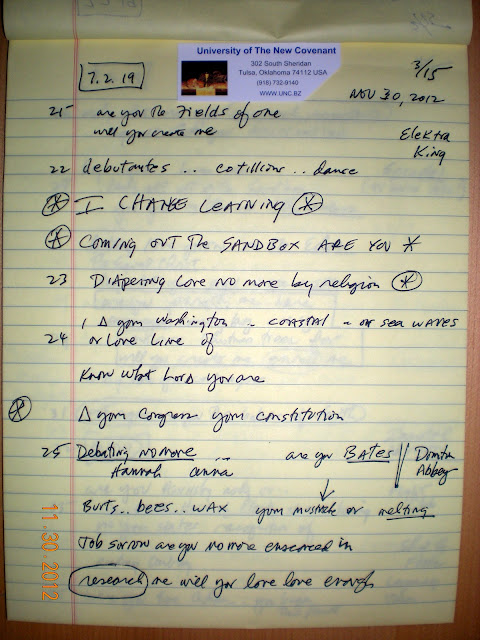 University of The New Covenant
302 South Sheridan
Tulsa, Oklahoma 74112 USA
(918) 732-9140
WWW.UNC.BZ
7.2.19
3/15
NOV 30, 2012
21 are you the Fields of one
will you create me
Elektra
King
22 debutantes .. cotillions .. dance
I CHANGE LEARNING
COMING OUT The SANDBOX ARE YOU
23 Diapering Love no more by religion
1 Δ your Washington .. COASTAL ~ or sea WAVES
24 or Love Line of
Know what Lord you are
Δ your Congress your constitution
25 Debating no more ... are you BATES
Downton
Abbey
Hannah anna
Burts.. bees.. wax your mustache or melting
Job sorrow are you no more ensconced in
research me will you love love enough
11.30.2012